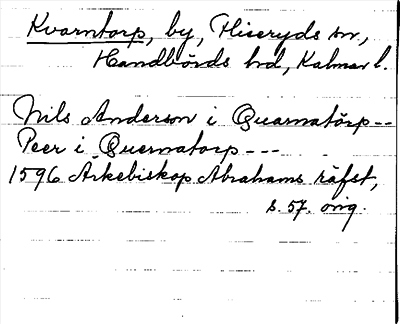 Kvarntorp, by, Fliseryds sn,
Handbörds hd, Kalmar l.
Nils Anderson i Quarnatörp --
Peer i Quernatorp ---
1596 Ärkebiskop Abrahams räfst,
s. 57. orig.